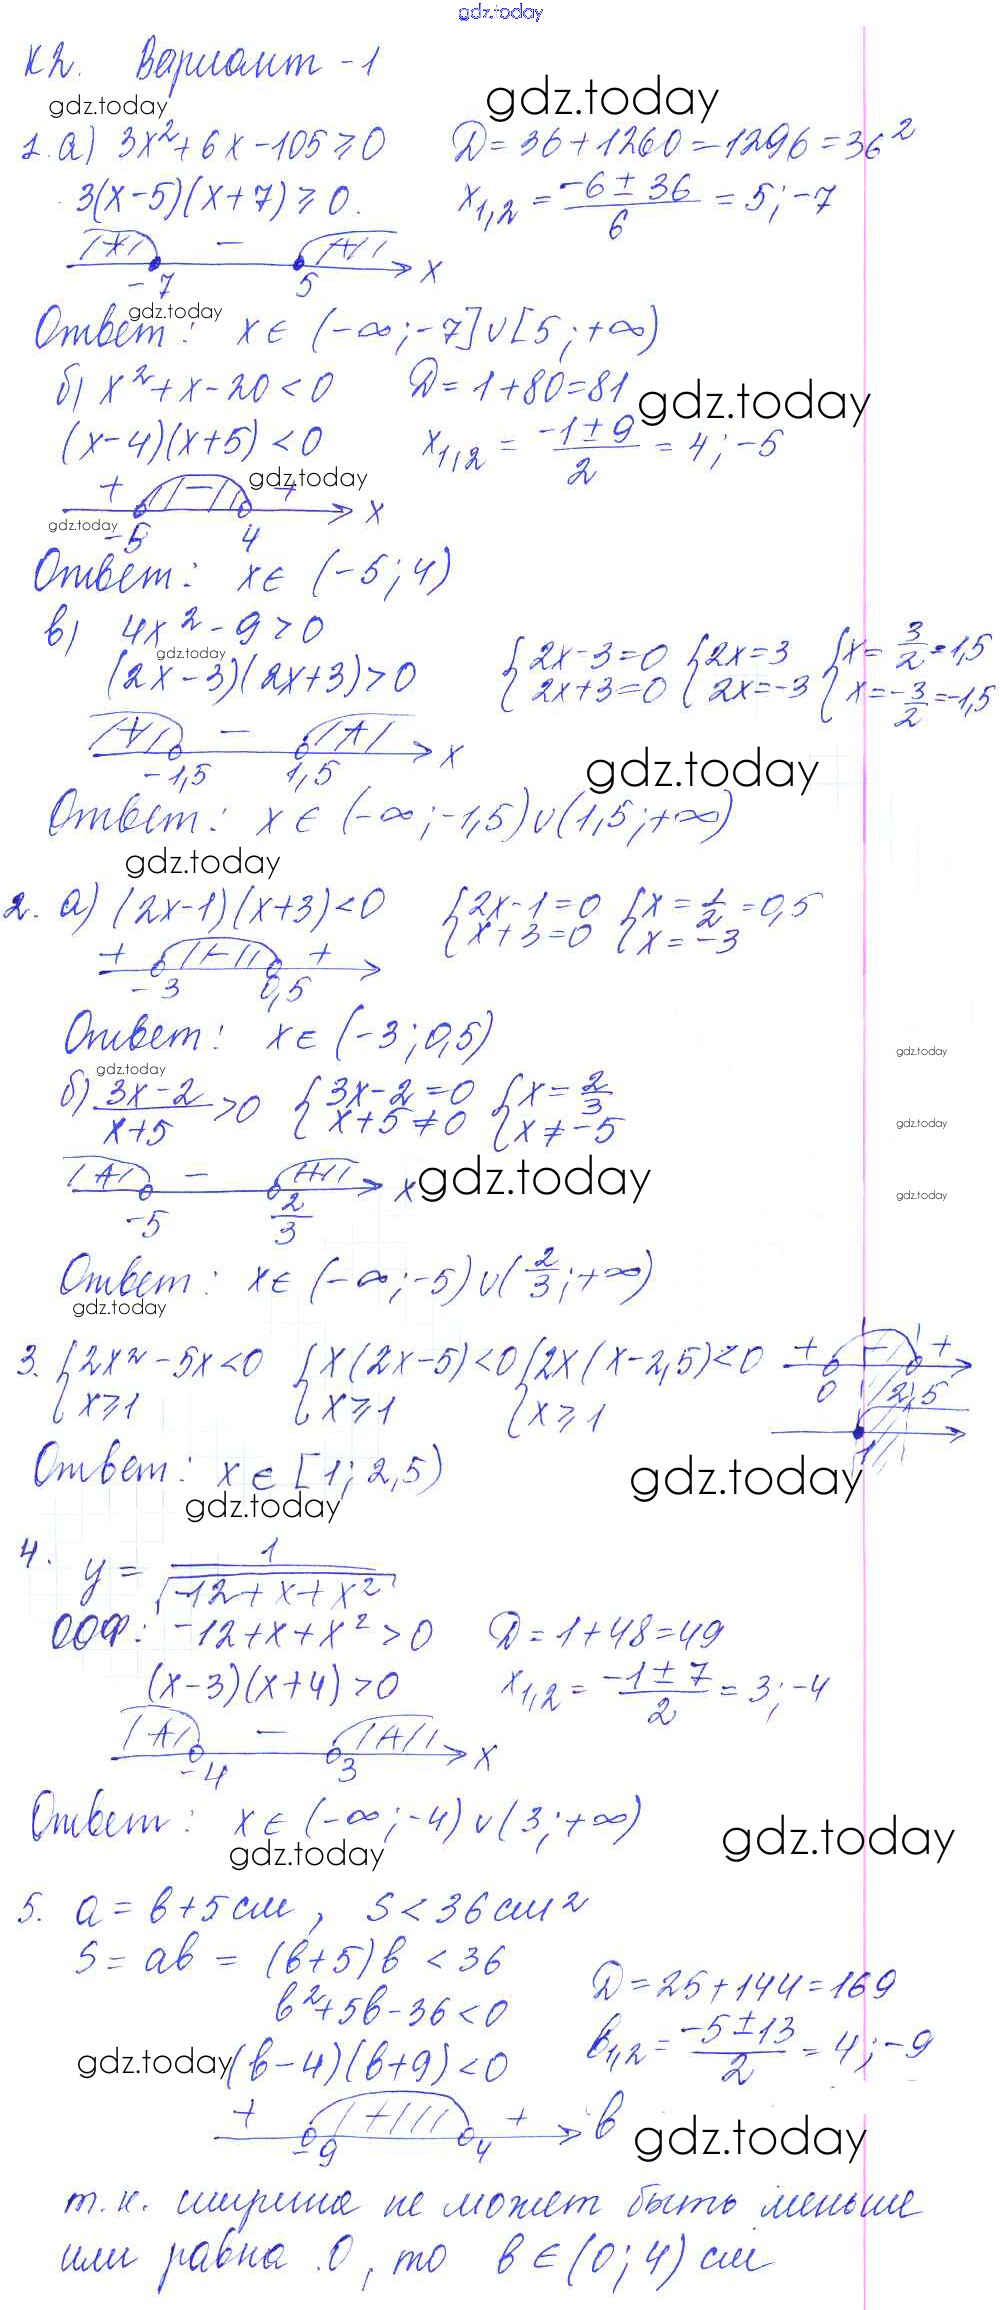 gdz.today
К2. Вариант -1
gdz.today gdz.today
1. а) 3x² + 6x - 105 ≥ 0 D = 36 + 1260 = 1296 = 36²
3(x-5)(x+7) ≥ 0. x₁,₂ = (-6 ± 36)/6 = 5; -7
+ − + x
-7 5
gdz.today
Ответ: x ∈ (-∞; -7] ∪ [5; +∞)
б) x² + x - 20 < 0 D = 1 + 80 = 81
gdz.today
(x-4)(x+5) < 0 x₁,₂ = (-1 ± 9)/2 = 4; -5
gdz.today
+ − + x
gdz.today
-5 4
Ответ: x ∈ (-5; 4)
в) 4x² - 9 > 0
gdz.today
(2x-3)(2x+3) > 0 {2x-3=0 {2x=3 {x = 3/2 = 1,5
{2x+3=0 {2x=-3 {x = -3/2 = -1,5
+ − + x
-1,5 1,5
gdz.today
Ответ: x ∈ (-∞; -1,5) ∪ (1,5; +∞)
gdz.today
2. а) (2x-1)(x+3) < 0 {2x-1=0 {x = 1/2 = 0,5
{x+3=0 {x = -3
+ − +
-3 0,5
Ответ: x ∈ (-3; 0,5)
gdz.today
gdz.today
б) (3x-2)/(x+5) > 0 {3x-2=0 {x = 2/3
{x+5≠0 {x ≠ -5
gdz.today
+ − + x
gdz.today
gdz.today
-5 2/3
Ответ: x ∈ (-∞; -5) ∪ (2/3; +∞)
gdz.today
3. {2x² - 5x < 0 {x(2x-5) < 0 {2x(x-2,5) < 0 + − +
{x ≥ 1 {x ≥ 1 {x ≥ 1 0 2,5
1
Ответ: x ∈ [1; 2,5)
gdz.today
gdz.today
4. y = 1/√(-12+x+x²)
ООФ: -12+x+x² > 0 D = 1+48 = 49
(x-3)(x+4) > 0 x₁,₂ = (-1 ± 7)/2 = 3; -4
+ − + x
-4 3
Ответ: x ∈ (-∞; -4) ∪ (3; +∞)
gdz.today
gdz.today
5. a = b + 5 см, S < 36 см²
S = ab = (b+5)b < 36
b² + 5b - 36 < 0 D = 25 + 144 = 169
gdz.today
(b-4)(b+9) < 0 b₁,₂ = (-5 ± 13)/2 = 4; -9
+ + + b
-9 4
gdz.today
т.к. ширина не может быть меньше
или равна 0, то b ∈ (0; 4) см